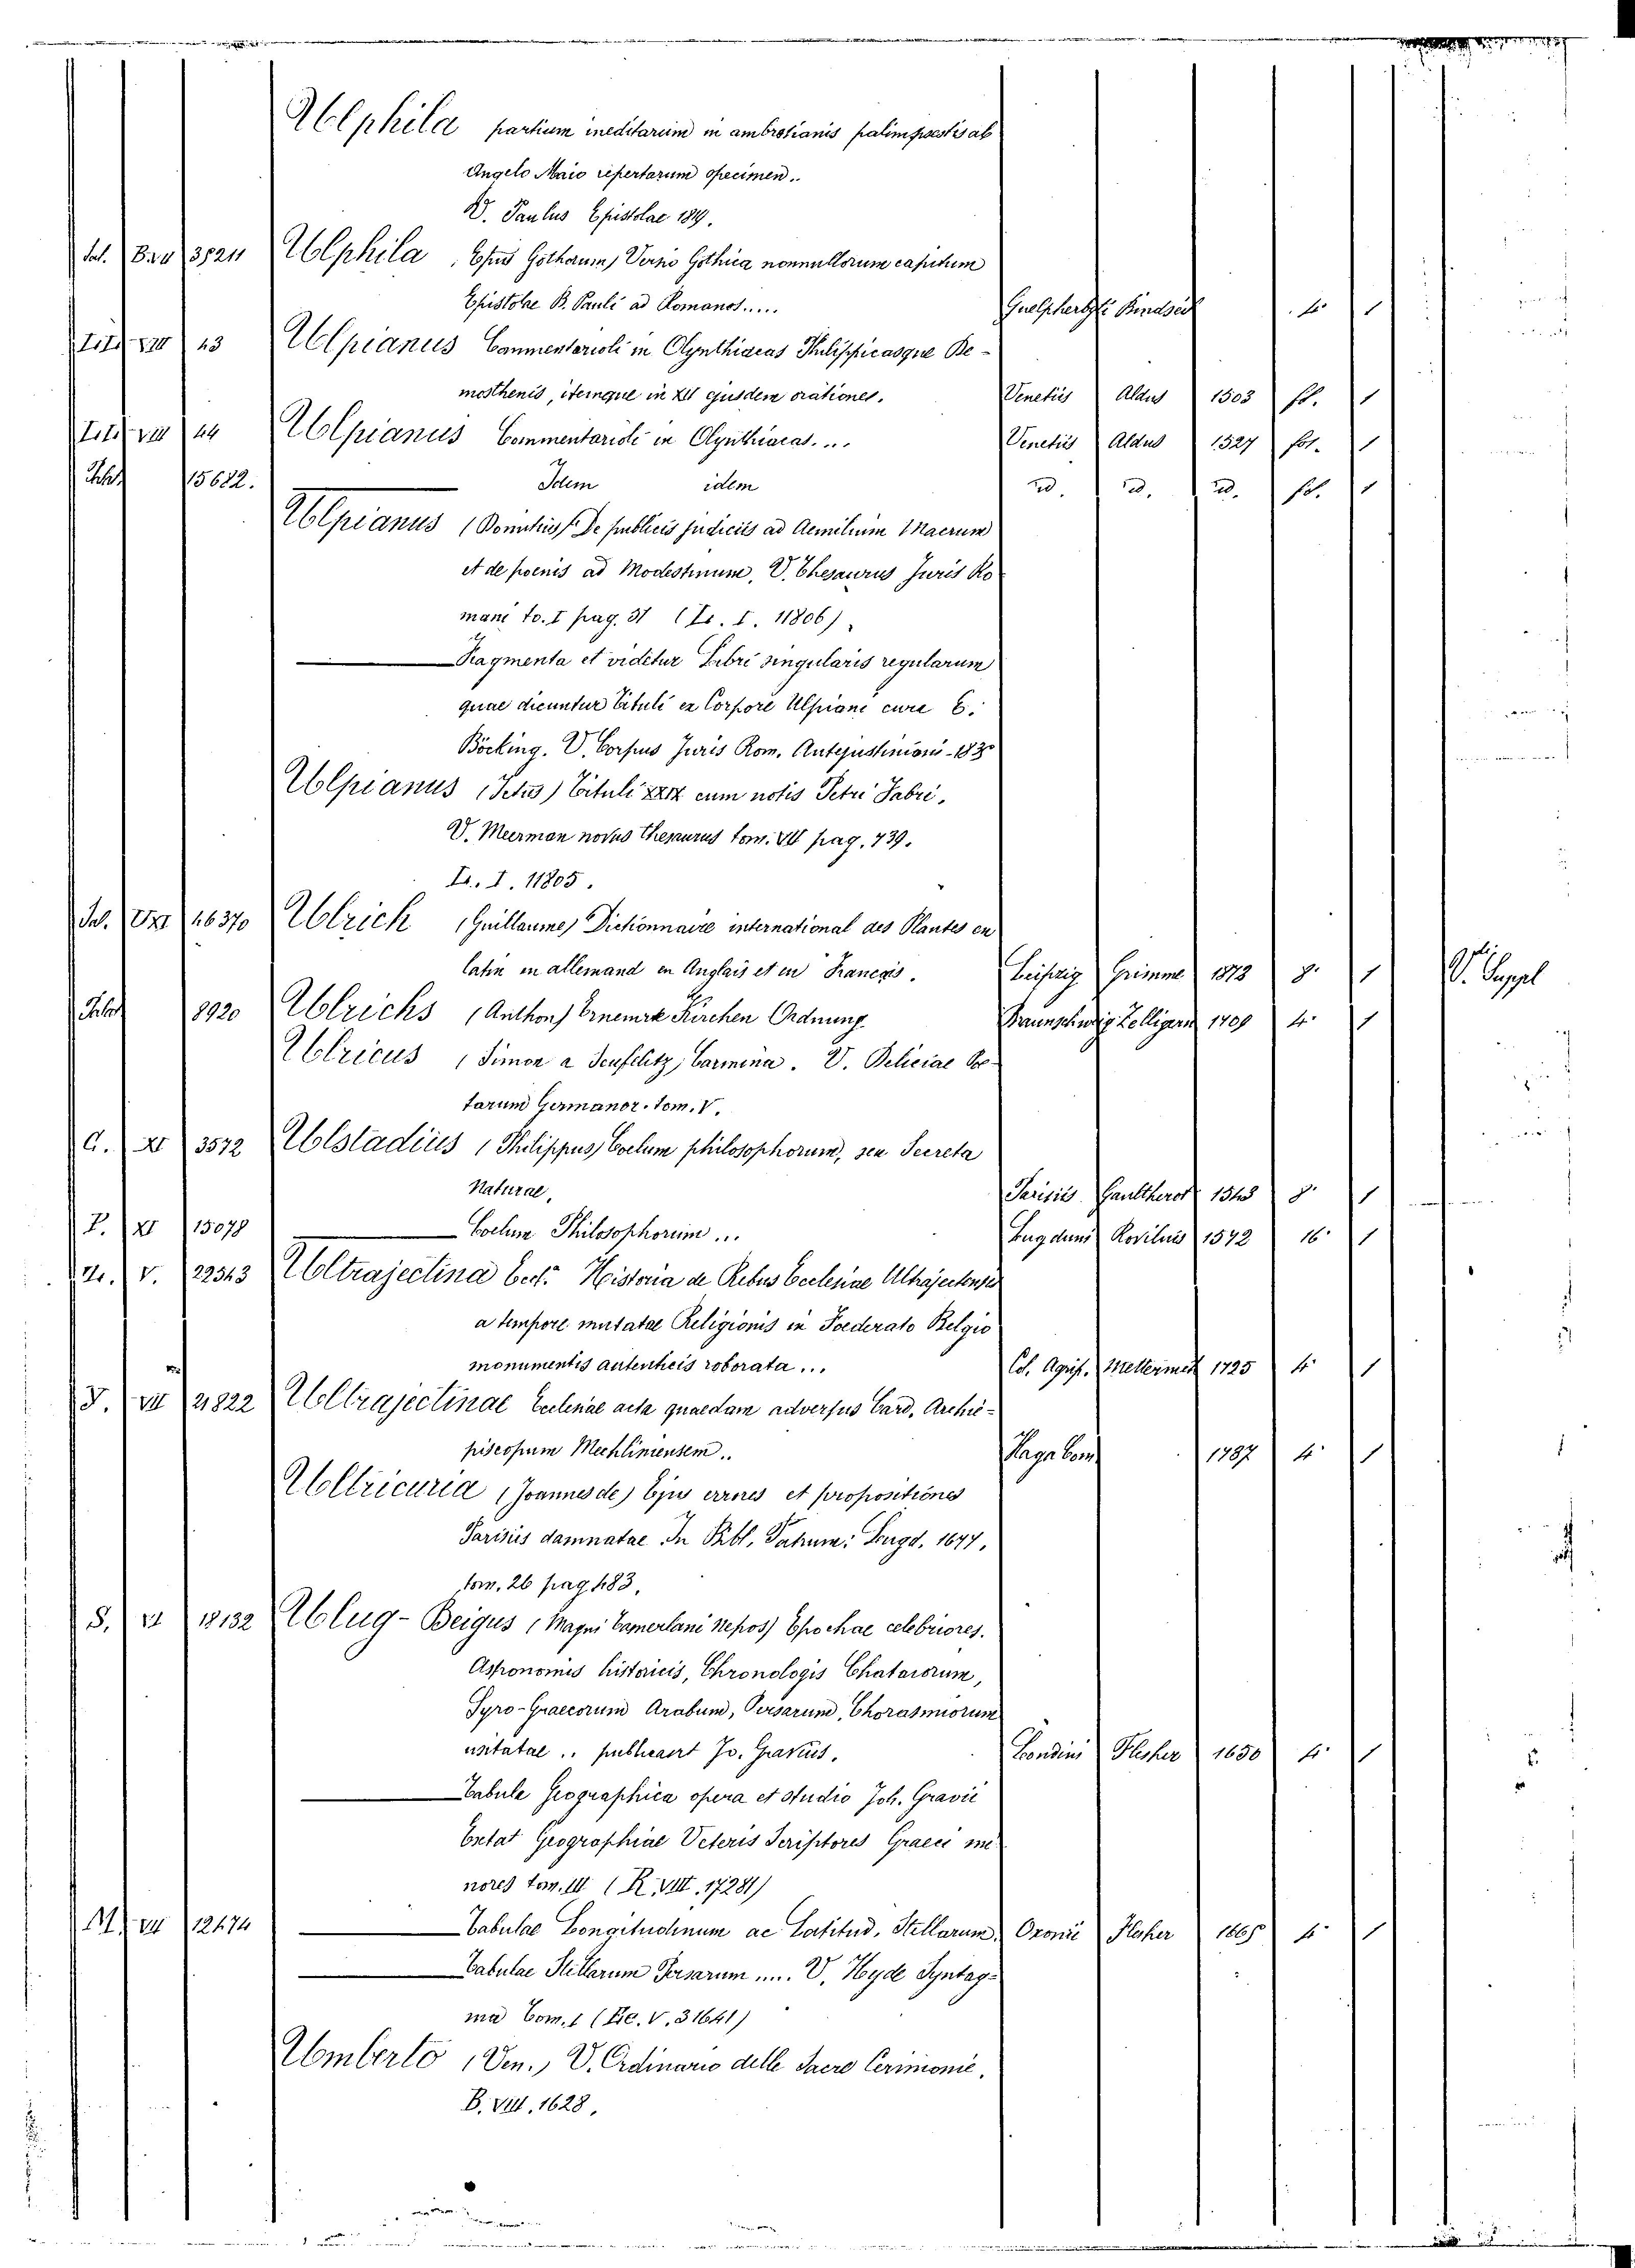 Ulphila partium ineditarum in ambrosianis palimpsestis ab
Angelo Maio repertarum specimen.
V. Paulus Epistolae 1819.
Sal. Bra 35211 Ulphila, Epus Gothorum, Versio Gothica nonnullorum capitum
Epistolae B. Pauli ad Romanos..... 4 1
VIII 43 Ulpianus Commentarioli in Olynthiacas Philippicasque De-
mosthenis, itemque in XII ejusdem orationes. Venetiis Aldus 1503 fol. 1
VIII 44 Ulpianus Commentarioli in Olynthiacas.... Venetiis Aldus 1527 fol. 1
15622. Idem idem id. id. id. fol. 1
Ulpianus (Domitius) De publicis judiciis ad Aemilium Macrum
et de poenis ad Modestinum, V. Thesaurus Juris Ro
mani to. I pag. 31 (Lr. I. 11806).
Fragmenta et videtur Libri singularis regularum
quae dicuntur Tituli ex Corpore Ulpiani cura E.
Böcking. V. Corpus Juris Rom. Antejustiniani - 183
Ulpianus (Jctus) Tituli XXIX cum notis Petri Fabri,
V. Meerman novus Thesaurus tom. VII pag. 739.
Lr. I. 11805.
Sal. 46370 Ulrich (Guillaume) Dictionnaire international des Plantes en
latin en allemand en Anglais et en Français. Leipzig Grimme 1872 8. 1 V. Suppl
8920 Ulrichs (Anthon) Erneuerte Kirchen Ordnung Braunschweig Zelligern 1709 4. 1
Ulricus (Simon a Seussilitz) Carmina. V. Deliciae Po-
tarum Germanor. tom. V.
C. XI 3572 Ulstadius (Philippus) Coelum philosophorum, seu Secreta
Naturae, Parisiis Gaultherot 1543 8. 1
P. XI 15078 Coelum Philosophorum... Lugduni Rovilius 1572 16. 1
V. 22543 Ultrajectina Eccl.a Historia de Rebus Ecclesiae Ultrajectensis
a tempore mutatae Religionis in Foederato Belgio
monumentis autenticis roborata... Col. Agrip. Metternich 1725 4. 1
VII 21822 Ultrajectinae Ecclesiae acta quaedam adversus Card. Archie-
piscopum Mechliniensem.. Haga Com 1787 4. 1
Ultricuria (Joannes de) Ejus errores et propositiones
Parisiis damnatae In Bibl. Patrum: Lugd. 1677.
tom. 26 pag 483.
S. VI 18132 Ulug-Beigus (Magni Tamerlani Nepos) Epochae celebriores.
Astronomis historicis, Chronologis Chataiorum,
Syro-Graecorum Arabum, Persarum, Chorasmiorum
usitatae.. publicavit Jo. Gravius. Londini Flesher 1650 4. 1
Tabulae Geographica opera et studio Joh. Gravii
Extat Geographiae Veteris Scriptores Graeci mi
nores tom. III (R. VIII. 17281)
M. VII 12474 Tabulae Longitudinum ac Latitud. Stellarum, Oxonii Flesher 1665 4. 1
Tabulae Stellarum Persarum..... V. Hyde Syntag-
ma Tom. 1 (V. 31641)
Umberto (Ven.) V. Ordinario delle Sacre Cerimonie.
B. VIII. 1628.